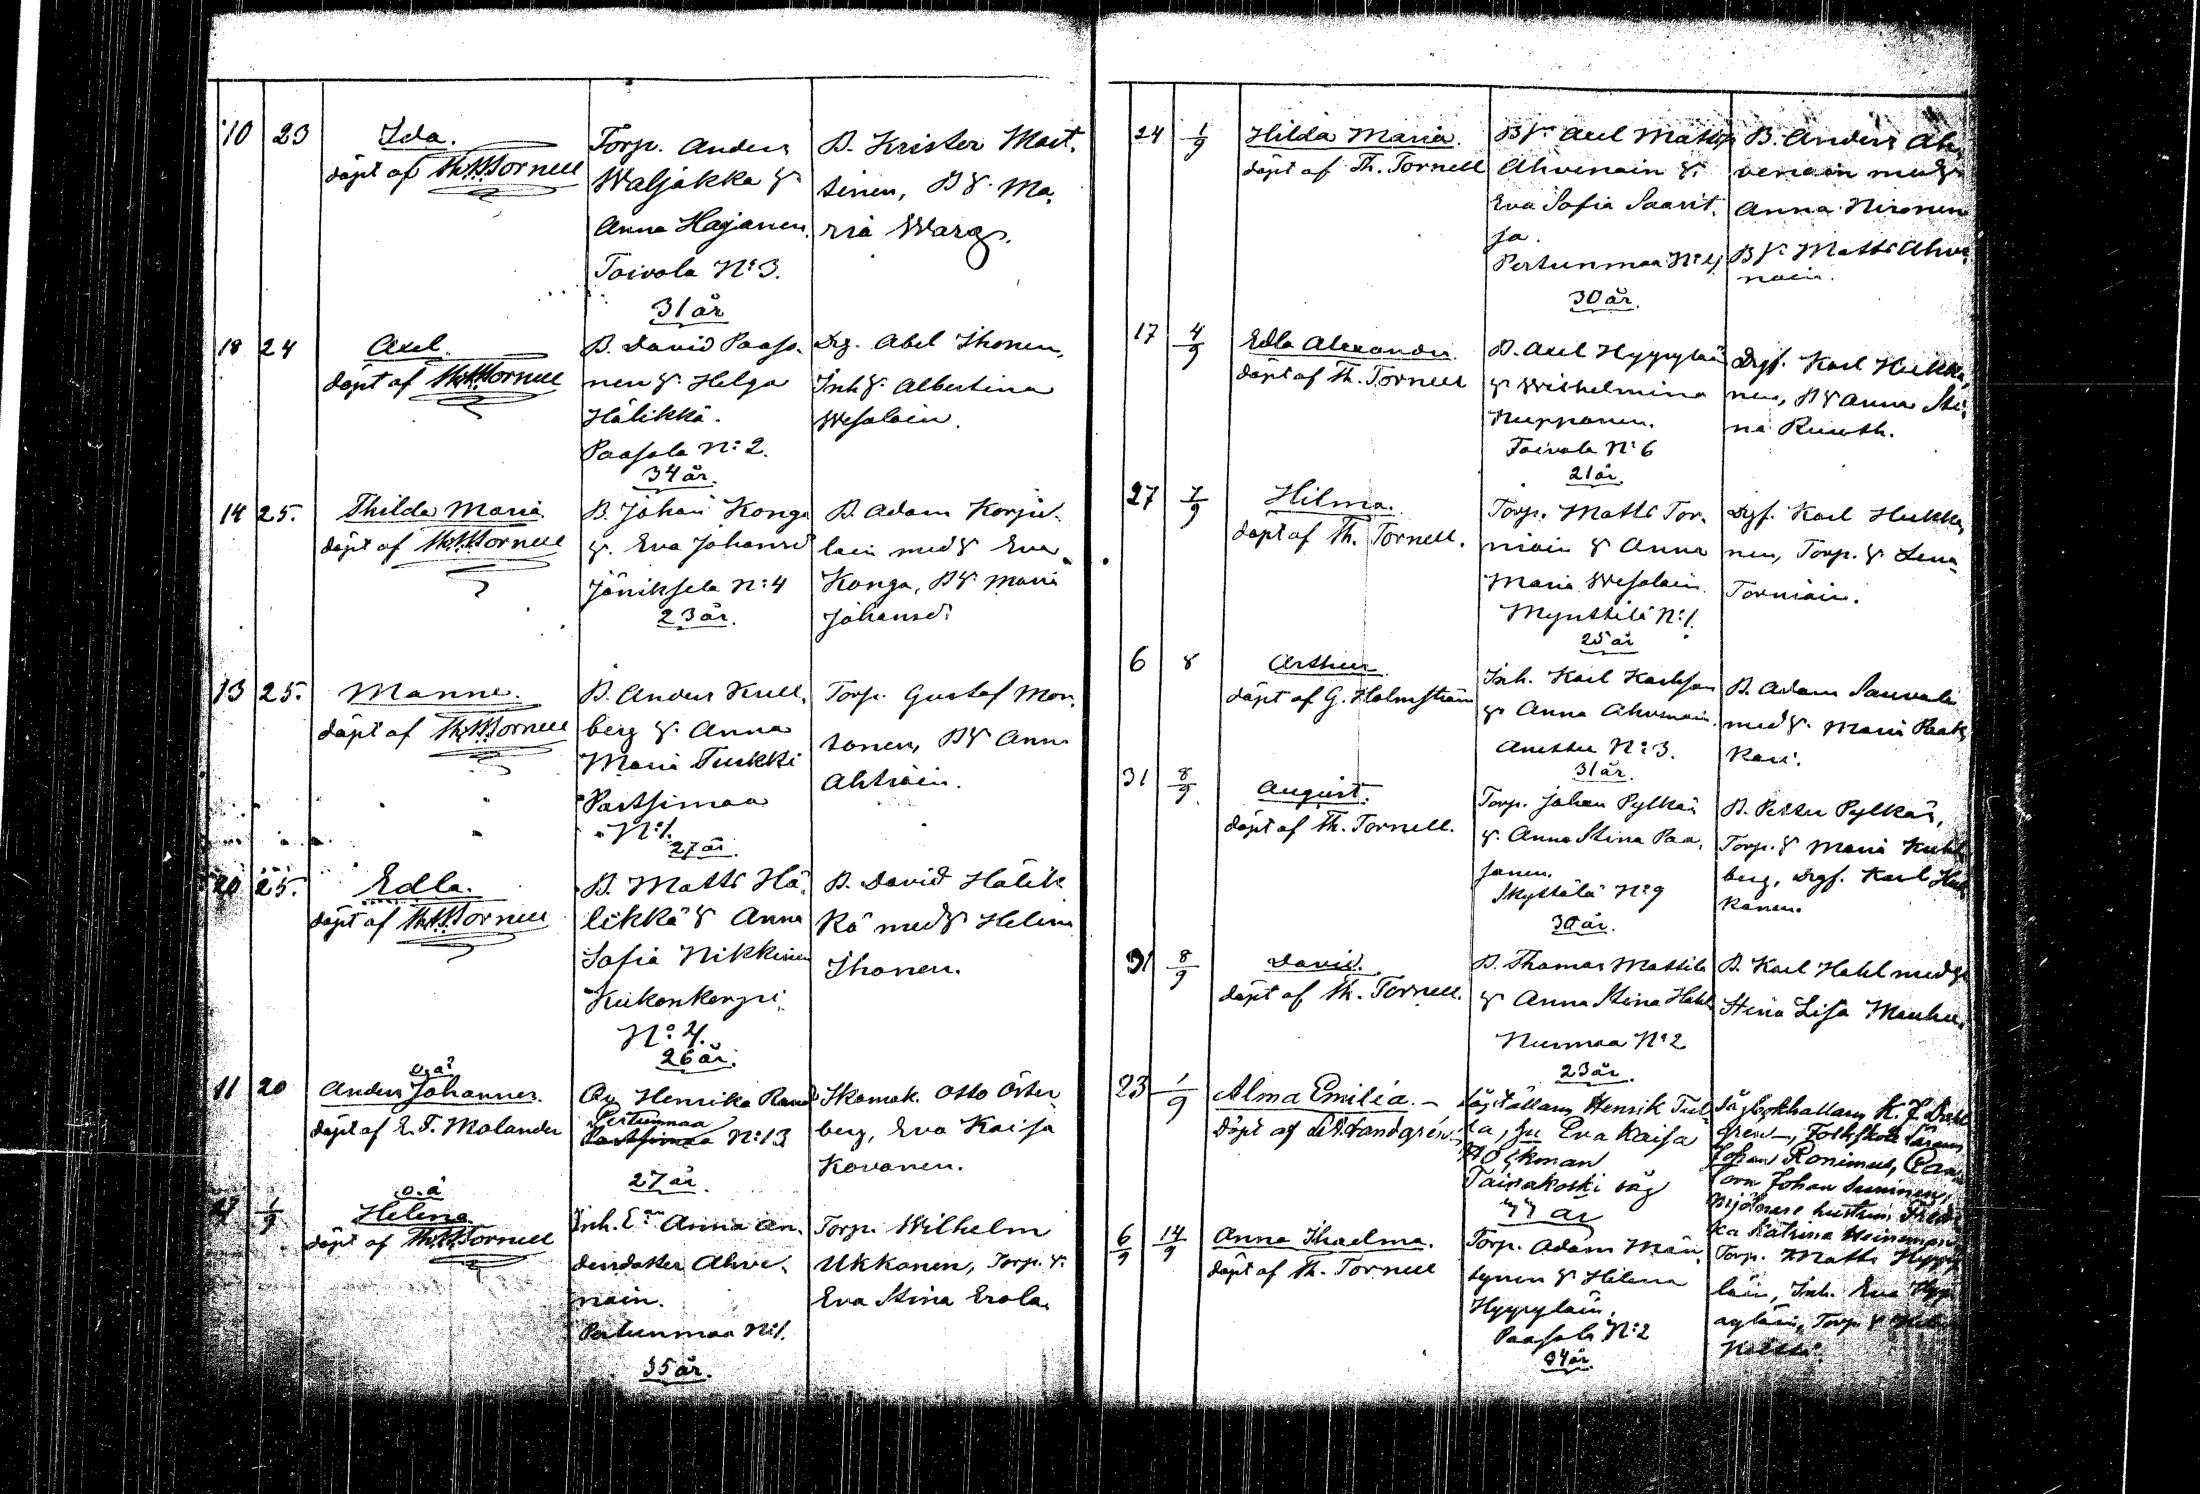 10 23 Ida.
döpt af Th. Tornell
Torp. Anders
Waljakka &
Anna Hajanen.
Toivola No 3.
31 år
B. Krister Mart,
tinen, B&. Ma,
ria Warg.
18 24 Axel.
döpt af Th. Tornell
B. David Paaso,
nen &. Helga
Hälikkä.
Paasola No 2.
34 år.
Drg. Abel Ihonen,
Inh &. Albertina
Wesalain.
14 25. Thilda Maria
döpt af Th. Tornell
B. Johan Konga
&. Eva Johansd
Jäniksela No: 4
23 år.
B. Adam Korju,
lain med & Eva
Konga, B&. Maria
Johansd:
13 25. Manne.
döpt af Th. Tornell
B. Anders Kull,
berg &. Anna
Maria Turkki
Partsimaa
No: 1.
27 år.
Torp. Gustaf Mon,
tonen, B& Anna
Ahtiain.
20 25. Edla.
döpt af Th. Tornell
B. Matts Hä,
likkä & Anna
Sofia Nikkinen
Kukonkorpi
No 4.
26 år.
B. David Hälik
kä med & Helena
Ihonen.
11 20 o.ä
Anders Johannes.
döpt af E. F. Molander
Henrika
Pertunmaa
Partsimaa No: 13
27 år.
Skomak. Otto Öster
berg, Eva Kaisa
Kovanen.
1/9 o.ä
Helena
döpt af Th. Tornell
Inh. Anna An,
dersdotter Ahve,
nain.
Pertunmaa No: 1.
35 år.
Torp. Wilhelm
Ukkonen, Torp. &.
Eva Stina Erola.
24 1/9 Hilda Maria.
döpt af Th. Tornell
Axel Matts
Ahvenain &.
Eva Sofia Saarit,
sa.
Pertunmaa No 4
30 år.
B. Anders Ah,
venain med &
Anna Hironen
Matts Ahve,
nain.
17 4/9 Edla Alexandra.
döpt af Th. Tornell
B. Axel Hyyryläin
& Wilhelmina
Nuppanen.
Toivola No 6
21 år.
Drgf. Karl Hukka,
nen, B& Anna Sti,
na Ruuth.
27 7/9 Hilma.
döpt af Th. Tornell.
Torp. Matts Tor,
niain & Anna
Maria Wesalain.
Mynttilä No: 1.
25 år
Drgf. Karl Hukka,
nen, Torp. & Lena
Torniain.
6 8 Arthur
döpt af G. Holmström
Inh. Karl Karlsson
&. Anna Ahvenain.
No: 3.
31 år.
B. Adam Sauvala
med &. Maria Paak,
kari.
31 8/9 August.
döpt af Th. Tornell.
Torp. Johan Pylkäs
&. Anna Stina Paa,
sonen.
Skyttälä No 9
30 år.
B. Petter Pylkäs,
Torp. & Maria Kull
berg, Drgf. Karl Huk
kanen.
31 8/9 David.
döpt af Th. Tornell.
B. Thomas Mattila
& Anna Stina Hahl
Nurmaa No 2
23 år.
B. Karl Hahl med &
Stina Lisa Mauku,
23 1/9 Alma Emilia. –
Döpt af Landgrén
Henrik Tul
la, hu Eva Kaisa
Hökman
Tainakoski såg
år
Sågbokhållaren K. J. Dahl
gren –, Folkskoleläraren
Johan Ronimus,
Johan Suninen,
Mjölnare hustrun Fredri
ka Katrina Heinonen
6/9 14/9 Anna Thaelma.
döpt af Th. Tornell
Torp. Adam Män,
tynen & Helena
Hyyryläin.
Paasola No: 2
34 år.
Torp. Matts Hyyry
läin, Inh. Eva Hyy
ryläin, Torp. &